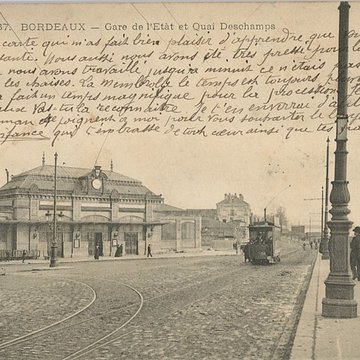 37. BORDEAUX — Gare de l'Etât et Quai Deschamps
carte qui m'as fait bien plaisir d'apprendre que
tante. Nous aussi nous avons été très pressé pour
nous avons travaillé jusqu'a minuit ce n'étais pas
les chaises. La le temps est toujours
a fait un temps magnifique pour la procession
Vas-tu la reconnaître Je t'en enverrai
maman se joignent à moi pour vous souhaiter le
enfance qui t'embrasse de tout cœur ainsi que tes